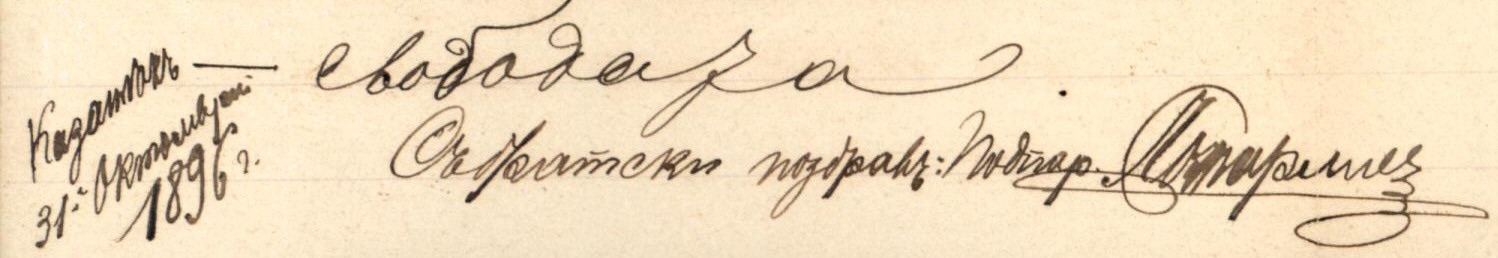 Казанлък —
31й Октомврий
1896 г.
свободата.
Съ братски поздравъ: Подпор.